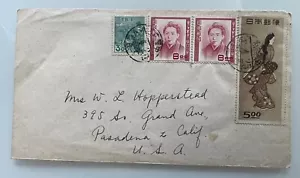 日本郵便
800
800
500
Mrs W. L Hopperstead
395 So. Grand Ave,
Pasadena 2 Calif.
U. S. A.